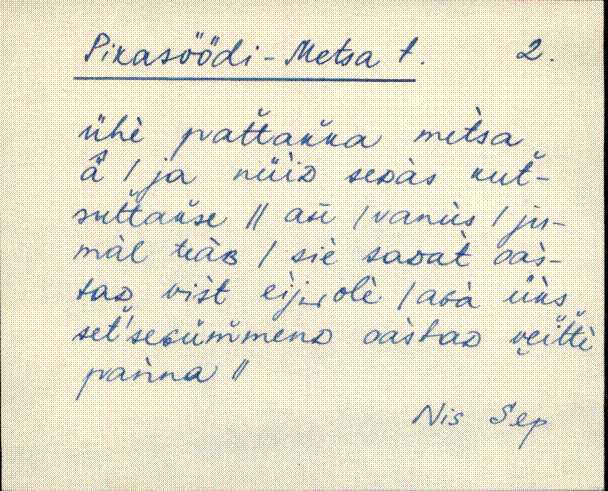 Pikasöödi-Metsa t. 2.
ühè pat̆takka mètsa
ä̂ / ja nüiᴅ seᴅàs kut̆-
sut̆takse // asè / vanùs / ju-
màl teàʙ / siè saᴅat̀ ᴀàs-
taᴅ vist eij‿olè / aɢà üks
set'seɢüm̆menᴅ ᴀàstaᴅ vei̯t̆tè
pan̆na //
Nis Sep